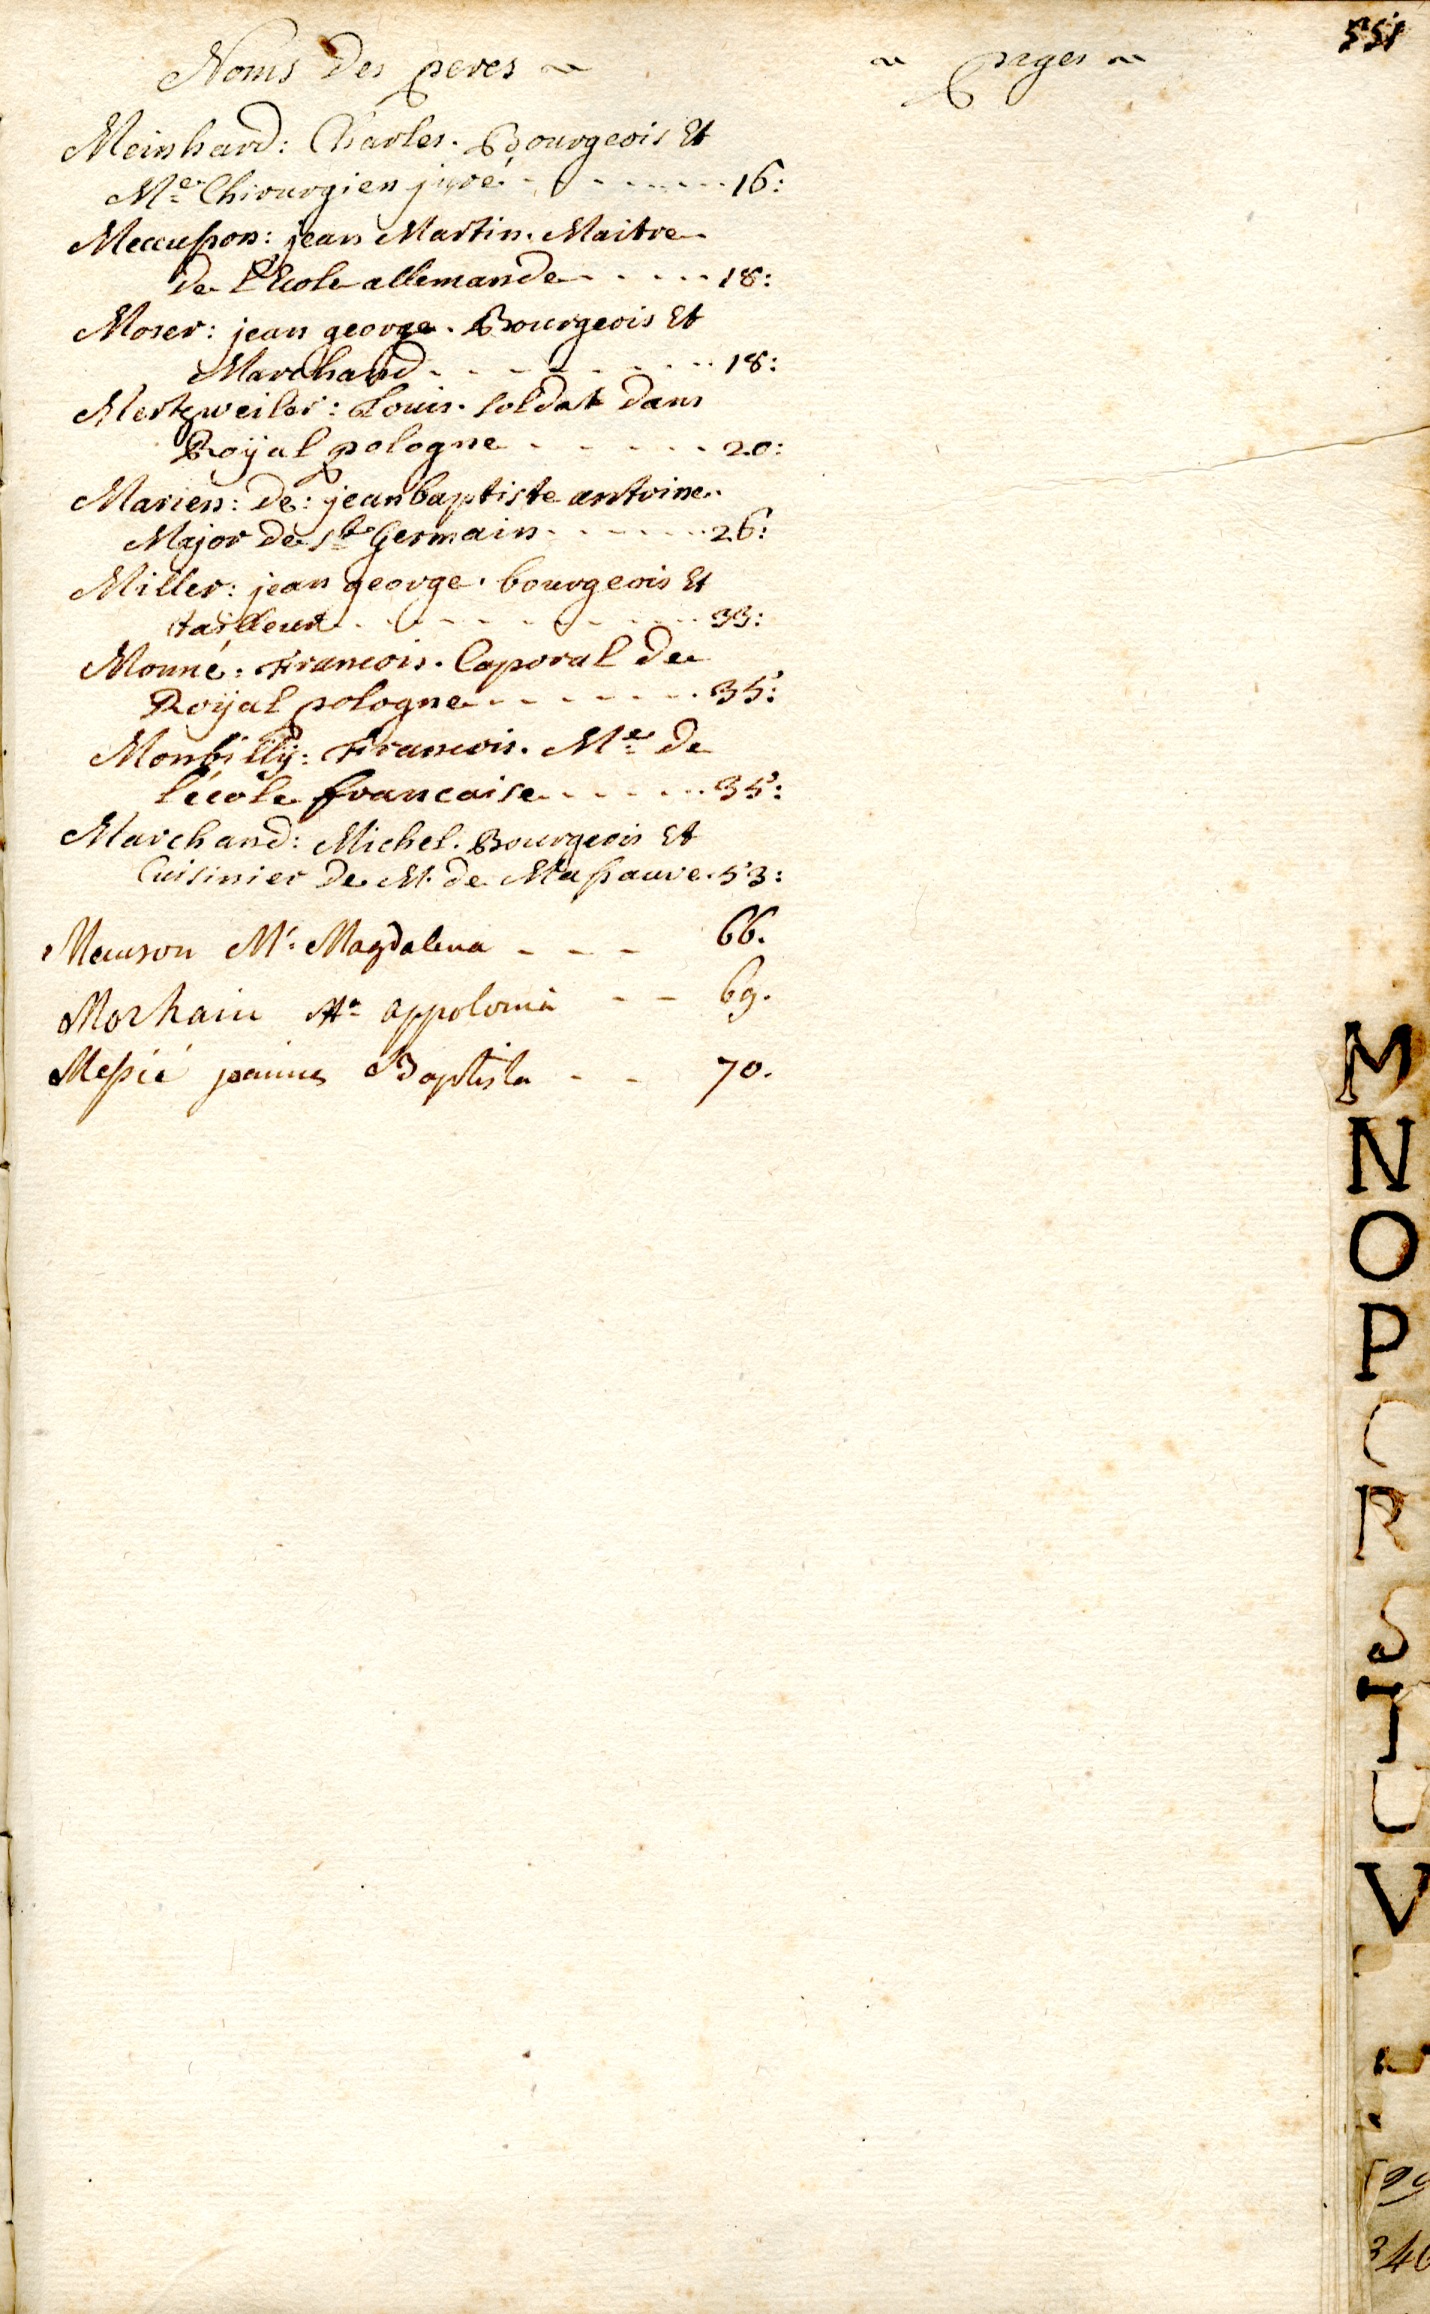 551
Noms Des peres ~ ~ pages ~
Meinhard: Charles. Bourgeois Et
Me Chirurgien juré - - - - - - - 16:
Mecusson: jean Martin. Maitre
De L'Ecole allemande - - - - - 18:
Moser: jean george. Bourgeois Et
Marchand - - - - - - - - 18:
Mertzweiler: Louis. soldat Dans
Royal pologne - - - - - - 20:
Marien: De: jean baptiste antoine.
Major De st Germain - - - - - - 26:
Miller: jean george. bourgeois Et
tailleur - - - - - - - - - - 33:
Monné: Francois. Caporal De
Royal pologne - - - - - - - 35:
Monbilly: Francois. Me De
l'école francaise - - - - - 35:
Marchand: Michel. Bourgeois Et
Cuisinier De M. de Massauve. 53:
Mauson Mr. Magdalena - - - 66.
Morhain Ma appolonia - - 69.
Messié joannes Baptista - - 70.
M
N
O
P
R
S
T
U
V